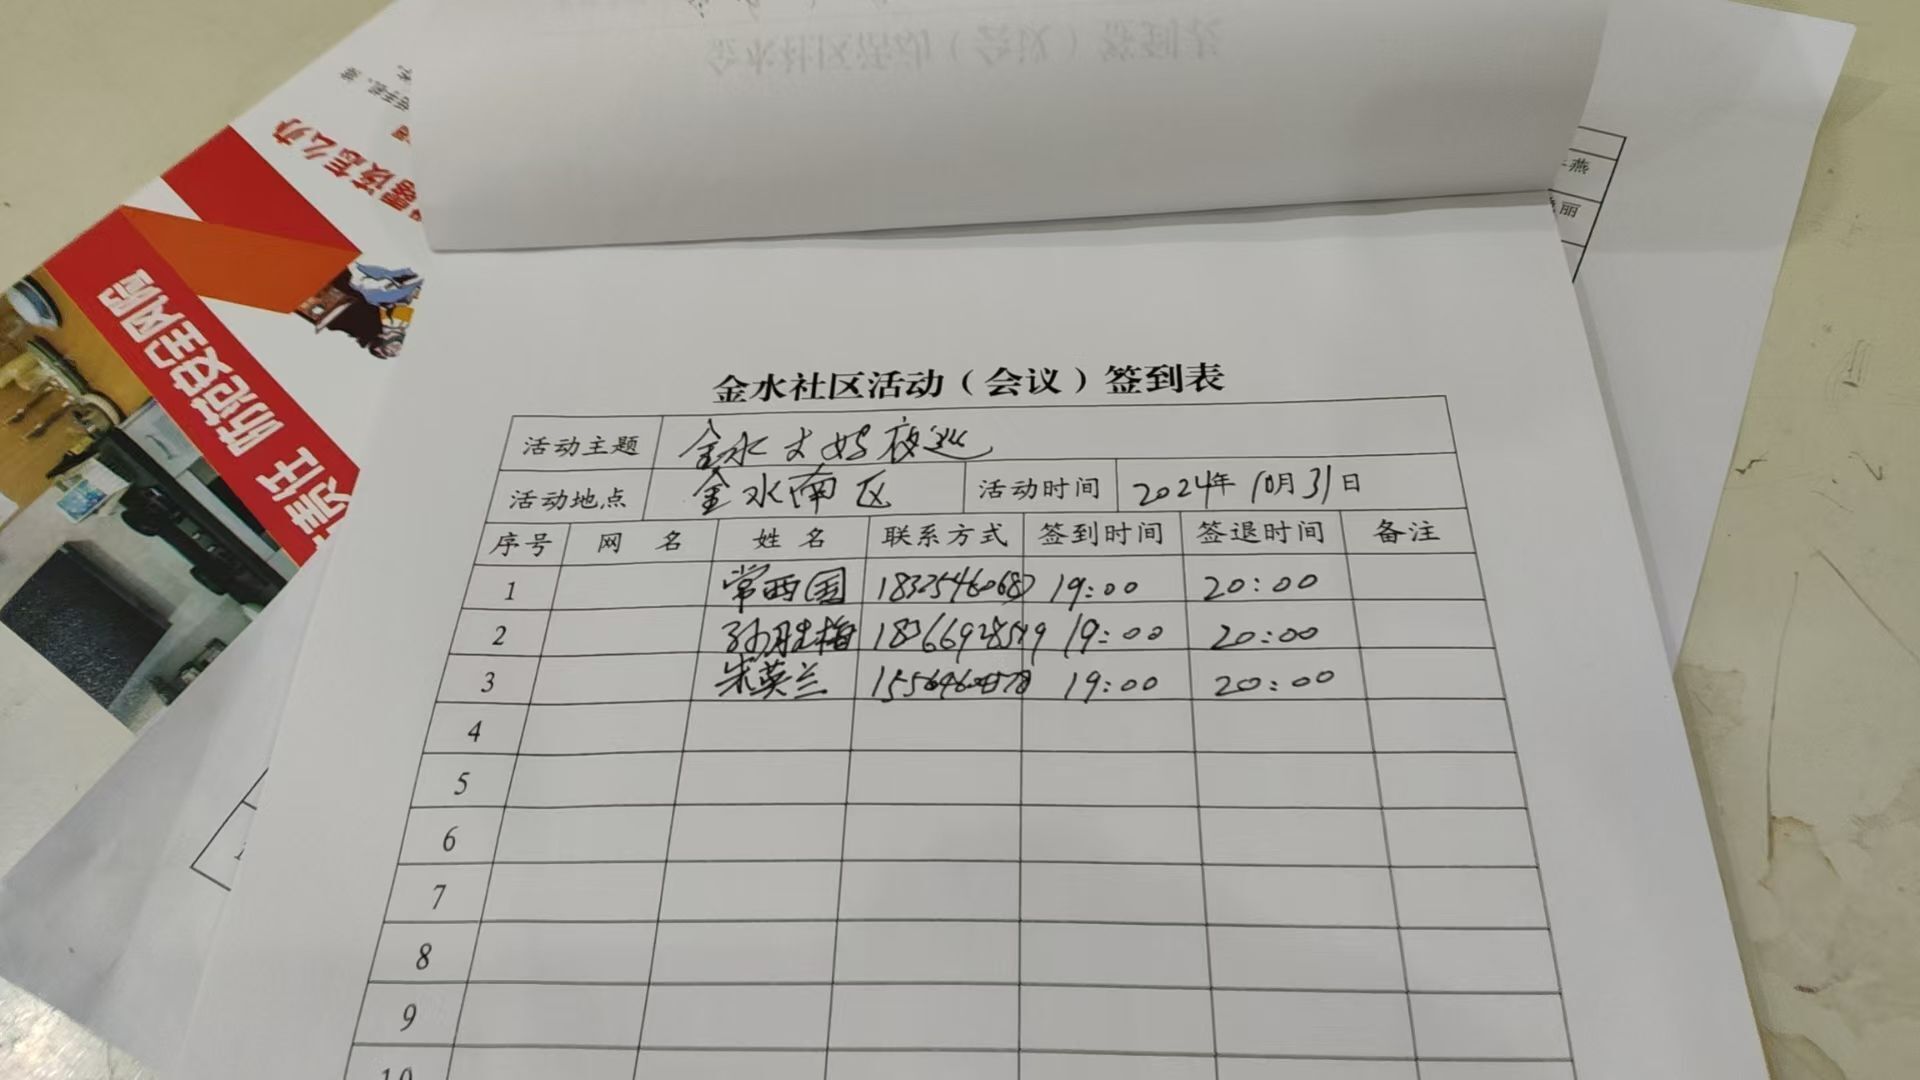 金水社区活动（会议）签到表
活动主题 金水大妈夜巡
活动地点 金水南区 活动时间 2024年10月31日
序号 网 名 姓 名 联系方式 签到时间 签退时间 备注
1 常西国 19:00 20:00
2 孙胜梅 18366928549 19:00 20:00
3 朱英兰 19:00 20:00
4
5
6
7
8
9
10
责任 防范安全风险
该怎么办
燕
丽